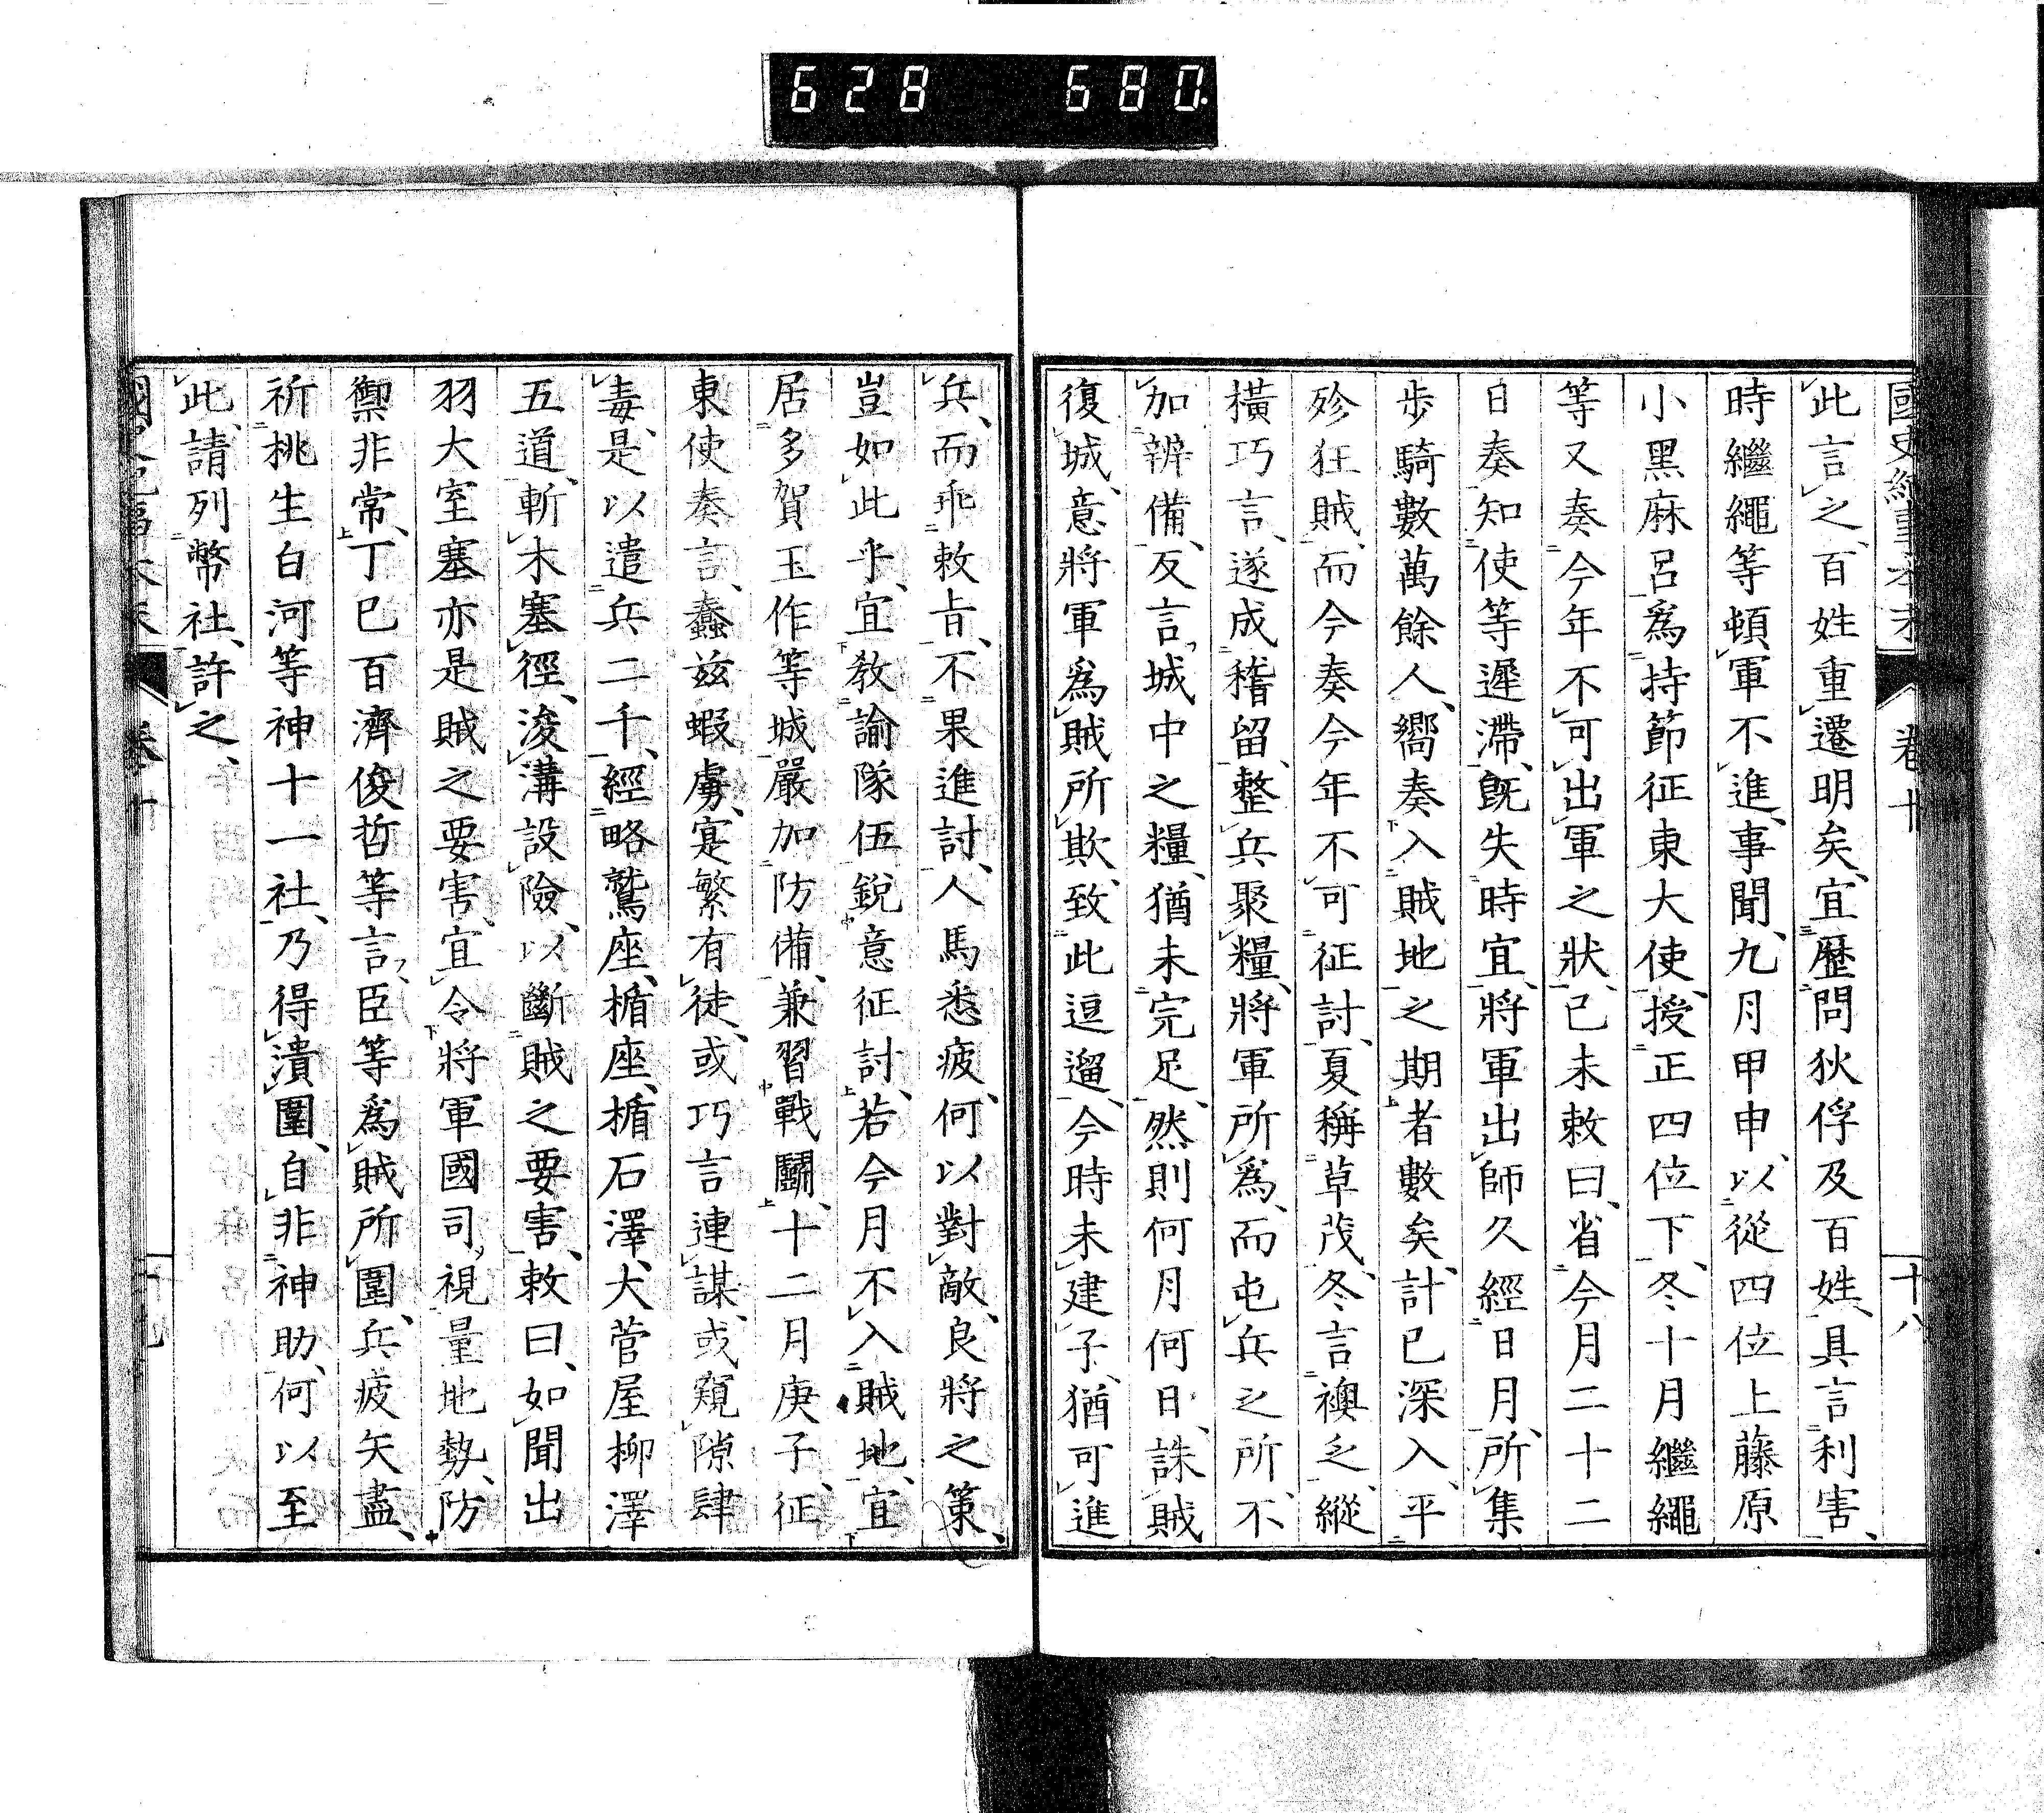 628 680.
卷十 十八
此言之、百姓重遷明矣、宜歷問狄俘及百姓、具言利害、
時繼繩等頓軍不進、事聞、九月甲申、以從四位上藤原
小黑麻呂爲持節征東大使、授正四位下、冬十月繼繩
等又奏今年不可出軍之狀、己未敕曰、省今月二十二
日奏、知使等遲滯、旣失時宜、將軍出師久經日月、所集
步騎數萬餘人、嚮奏入賊地之期者數矣、計已深入、平
殄狂賊、而今奏今年不可征討、夏稱草茂、冬言襖乏、縱
橫巧言、遂成稽留、整兵聚糧、將軍所爲、而屯兵之所、不
加辨備、反言、城中之糧、猶未完足、然則何月何日、誅賊
復城、意將軍爲賊所欺、致此逗遛、今時未建子、猶可進
兵、而乖敕旨、不果進討、人馬悉疲、何以對敵、良將之策、
豈如此乎、宜敎諭隊伍銳意征討、若今月不入賊地、宜
居多賀玉作等城嚴加防備、兼習戰鬭、十二月庚子、征
東使奏言、蠢玆蝦虜、寔繁有徒、或巧言連謀、或窺隙肆
毒、是以遣兵二千、經略鷲座、楯座、楯石澤、大菅屋柳澤
五道、斬木塞徑、浚溝設險、以斷賊之要害、敕曰、如聞出
羽大室塞亦是賊之要害、宜令將軍國司、視量地勢、防
禦非常、丁巳百濟俊哲等言、臣等爲賊所圍、兵疲矢盡、
祈桃生白河等神十一社、乃得潰圍、自非神助、何以至
此、請列幣社、許之、